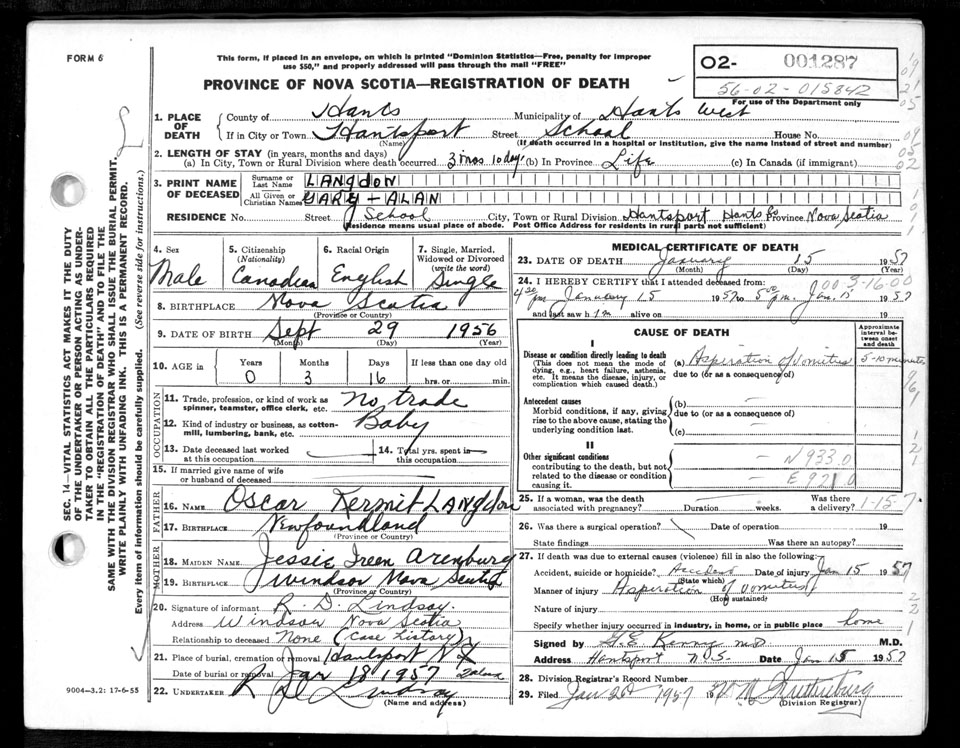 FORM 6
This form, if placed in an envelope, on which is printed "Dominion Statistics—Free, penalty for improper
use $50," and properly addressed will pass through the mail "FREE"
PROVINCE OF NOVA SCOTIA—REGISTRATION OF DEATH
O2- 001287
56-02-015842
For use of the Department only
1. PLACE OF DEATH
County of Hants Municipality of Hants West
If in City or Town Hantsport Street School House No.
(Name) (If death occurred in a hospital or institution, give the name instead of street and number)
2. LENGTH OF STAY (in years, months and days)
(a) In City, Town or Rural Division where death occurred 3 mos 10 days (b) In Province Life (c) In Canada (if immigrant)
3. PRINT NAME OF DECEASED
Surname or Last Name LANGDON
All Given or Christian Names GARY-ALAN
RESIDENCE No. Street School City, Town or Rural Division Hantsport Hants Co Province Nova Scotia
(Residence means usual place of abode. Post Office Address for residents in rural parts not sufficient)
4. Sex Male
5. Citizenship (Nationality) Canadian
6. Racial Origin English
7. Single, Married, Widowed or Divorced (write the word) Single
8. BIRTHPLACE Nova Scotia
(Province or Country)
9. DATE OF BIRTH Sept 29 1956
(Month) (Day) (Year)
10. AGE in Years Months Days If less than one day old
0 3 16 hrs. or min.
OCCUPATION
11. Trade, profession, or kind of work as spinner, teamster, office clerk, etc. No trade
12. Kind of industry or business, as cotton-mill, lumbering, bank, etc. Baby
13. Date deceased last worked at this occupation
14. Total yrs. spent in this occupation
15. If married give name of wife or husband of deceased
FATHER
16. NAME Oscar Kermit LANGDON
17. BIRTHPLACE Newfoundland
(Province or Country)
MOTHER
18. MAIDEN NAME Jessie Ireen Arenburg
19. BIRTHPLACE Windsor Nova Scotia
(Province or Country)
20. Signature of informant R. D. Lindsay
Address Windsor Nova Scotia
Relationship to deceased None (Case History)
21. Place of burial, cremation or removal Hantsport N.S.
Date of burial or removal Jan 18 1957
22. UNDERTAKER R D Lindsay
(Name and address)
9004—3.2: 17-6-55
MEDICAL CERTIFICATE OF DEATH
23. DATE OF DEATH January 15 1957
(Month) (Day) (Year)
24. I HEREBY CERTIFY that I attended deceased from:
January 15 1957 to 5 pm. Jan. 15 1957
and last saw him alive on 19
CAUSE OF DEATH
Approximate interval between onset and death
I
Disease or condition directly leading to death
(This does not mean the mode of dying, e.g., heart failure, asthenia, etc. It means the disease, injury, or complication which caused death.)
(a) Aspiration of Vomitus 5-10 minutes
due to (or as a consequence of)
Antecedent causes
Morbid conditions, if any, giving rise to the above cause, stating the underlying condition last.
(b)
due to (or as a consequence of)
(c)
II
Other significant conditions
contributing to the death, but not related to the disease or condition causing it.
N933.0
E921.0
25. If a woman, was the death associated with pregnancy? Duration weeks. Was there a delivery?
26. Was there a surgical operation? Date of operation 19
State findings Was there an autopsy?
27. If death was due to external causes (violence) fill in also the following:
Accident, suicide or homicide? Accident Date of injury Jan 15 1957
(State which)
Manner of injury Aspiration of Vomitus
(How sustained)
Nature of injury
Specify whether injury occurred in industry, in home, or in public place home
Signed by M.D.
Address Hantsport N.S. Date Jan 15 1957
28. Division Registrar's Record Number
29. Filed Jan 1957
(Division Registrar)
SEC. 14—VITAL STATISTICS ACT MAKES IT THE DUTY
OF THE UNDERTAKER OR PERSON ACTING AS UNDER-
TAKER TO OBTAIN ALL THE PARTICULARS REQUIRED
IN THE "REGISTRATION OF DEATH" AND TO FILE THE
SAME WITH THE DIVISION REGISTRAR WHO SHALL ISSUE THE BURIAL PERMIT.
WRITE PLAINLY WITH UNFADING INK. THIS IS A PERMANENT RECORD.
Every item of information should be carefully supplied. (See reverse side for instructions.)